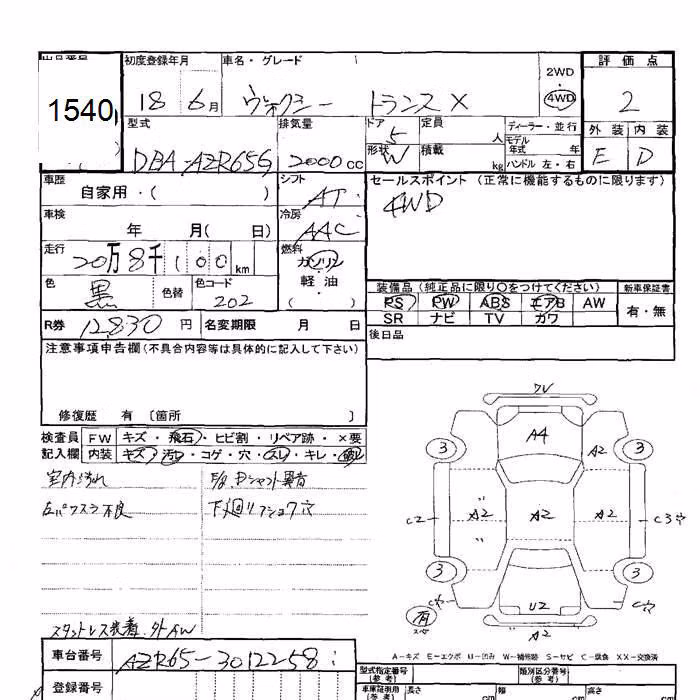 1540
初度登録年月 車名・グレード
18 6月 ヴォクシー トランスX
2WD
4WD
評価点
2
型式 排気量 ドア 定員 ディーラー・並行
DBA-AZR65G 2000cc 5 人 モデル年式 年
形状 W 積載 kg ハンドル 左・右
外装 内装
E D
車歴 シフト セールスポイント (正常に機能するものに限ります)
自家用・( ) AT 4WD
車検 冷房
年 月( 日) AAC
走行 燃料
20万8千100km ガソリン
軽・油
( )
色 色替 色コード
黒 202
装備品(純正品に限り○をつけてください) 新車保証書
PS PW ABS エアB AW 有・無
SR ナビ TV カワ
R券 12830円 名変期限 月 日
後日品
注意事項申告欄(不具合内容等は具体的に記入して下さい)
修復歴 有〔箇所 〕
検査員 FW キズ・飛石・ヒビ割・リペア跡・×要
記入欄 内装 キズ・汚レ・コゲ・穴・スレ・キレ・
室内汚れ
左パワスラ不良
異音
スタットレス装着、外AW
A4
A2
3 3
C2 A2 A2 A2 C3
3 3
U2
有
A2
A-キズ E-エクボ U-凹み W-補修跡 S-サビ C-腐食 XX-交換済
車台番号 AZR65-3012258
登録番号
型式指定番号(参考) 類別区分番号(参考)
車庫証明用(参考) 長さ cm 幅 cm 高さ cm